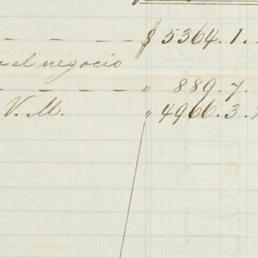 — $ 5364.1.
el negocio
— — — " 889.7.
V. M. " 4966.3.